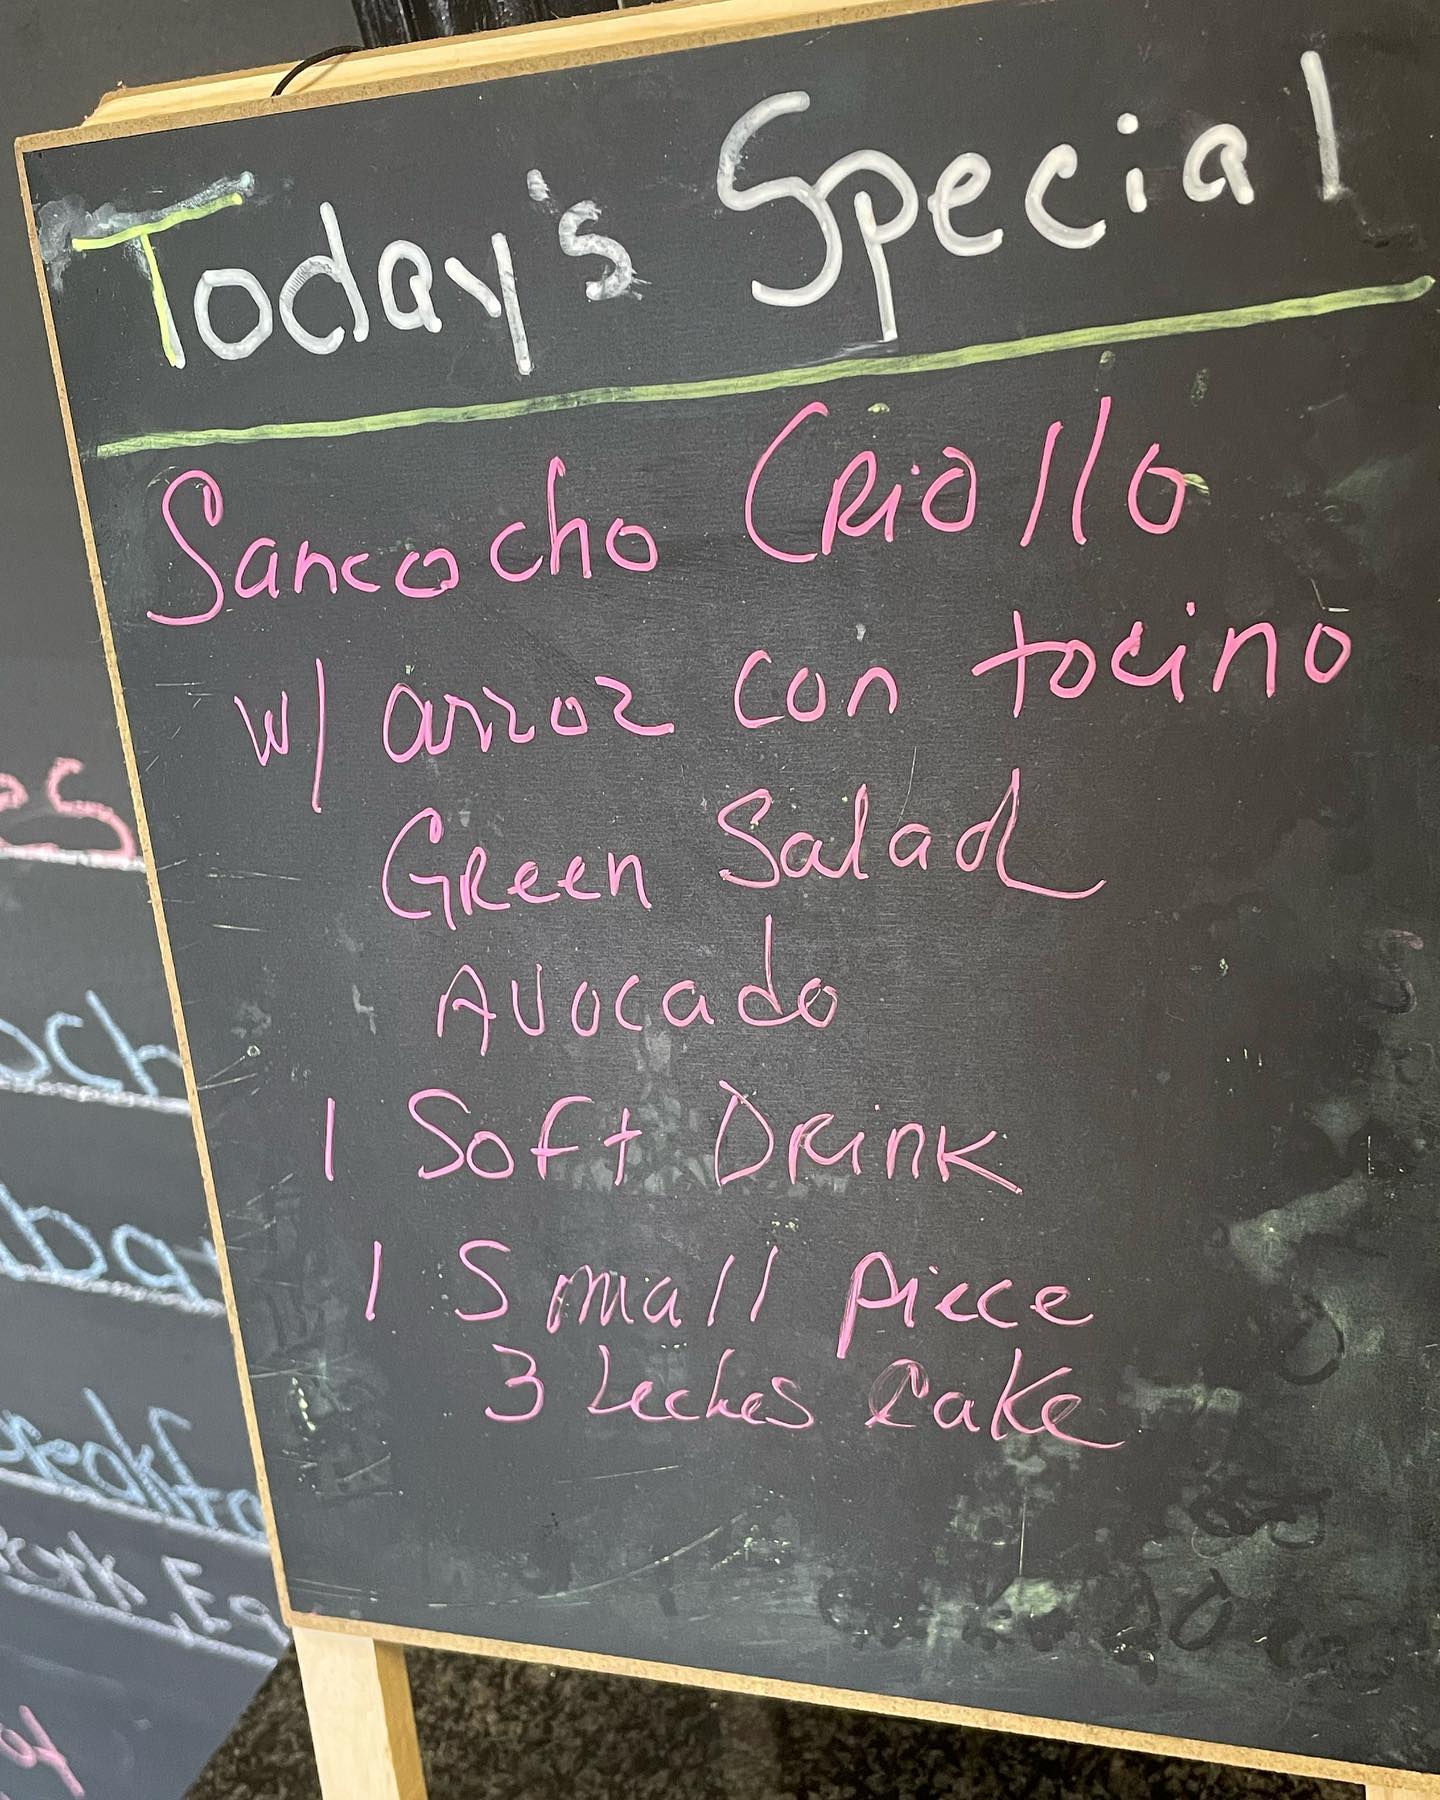 Today's Special
Sancocho Criollo
w/ arroz con tocino
Green Salad
Avocado
1 Soft Drink
1 Small piece
3 Leches Cake